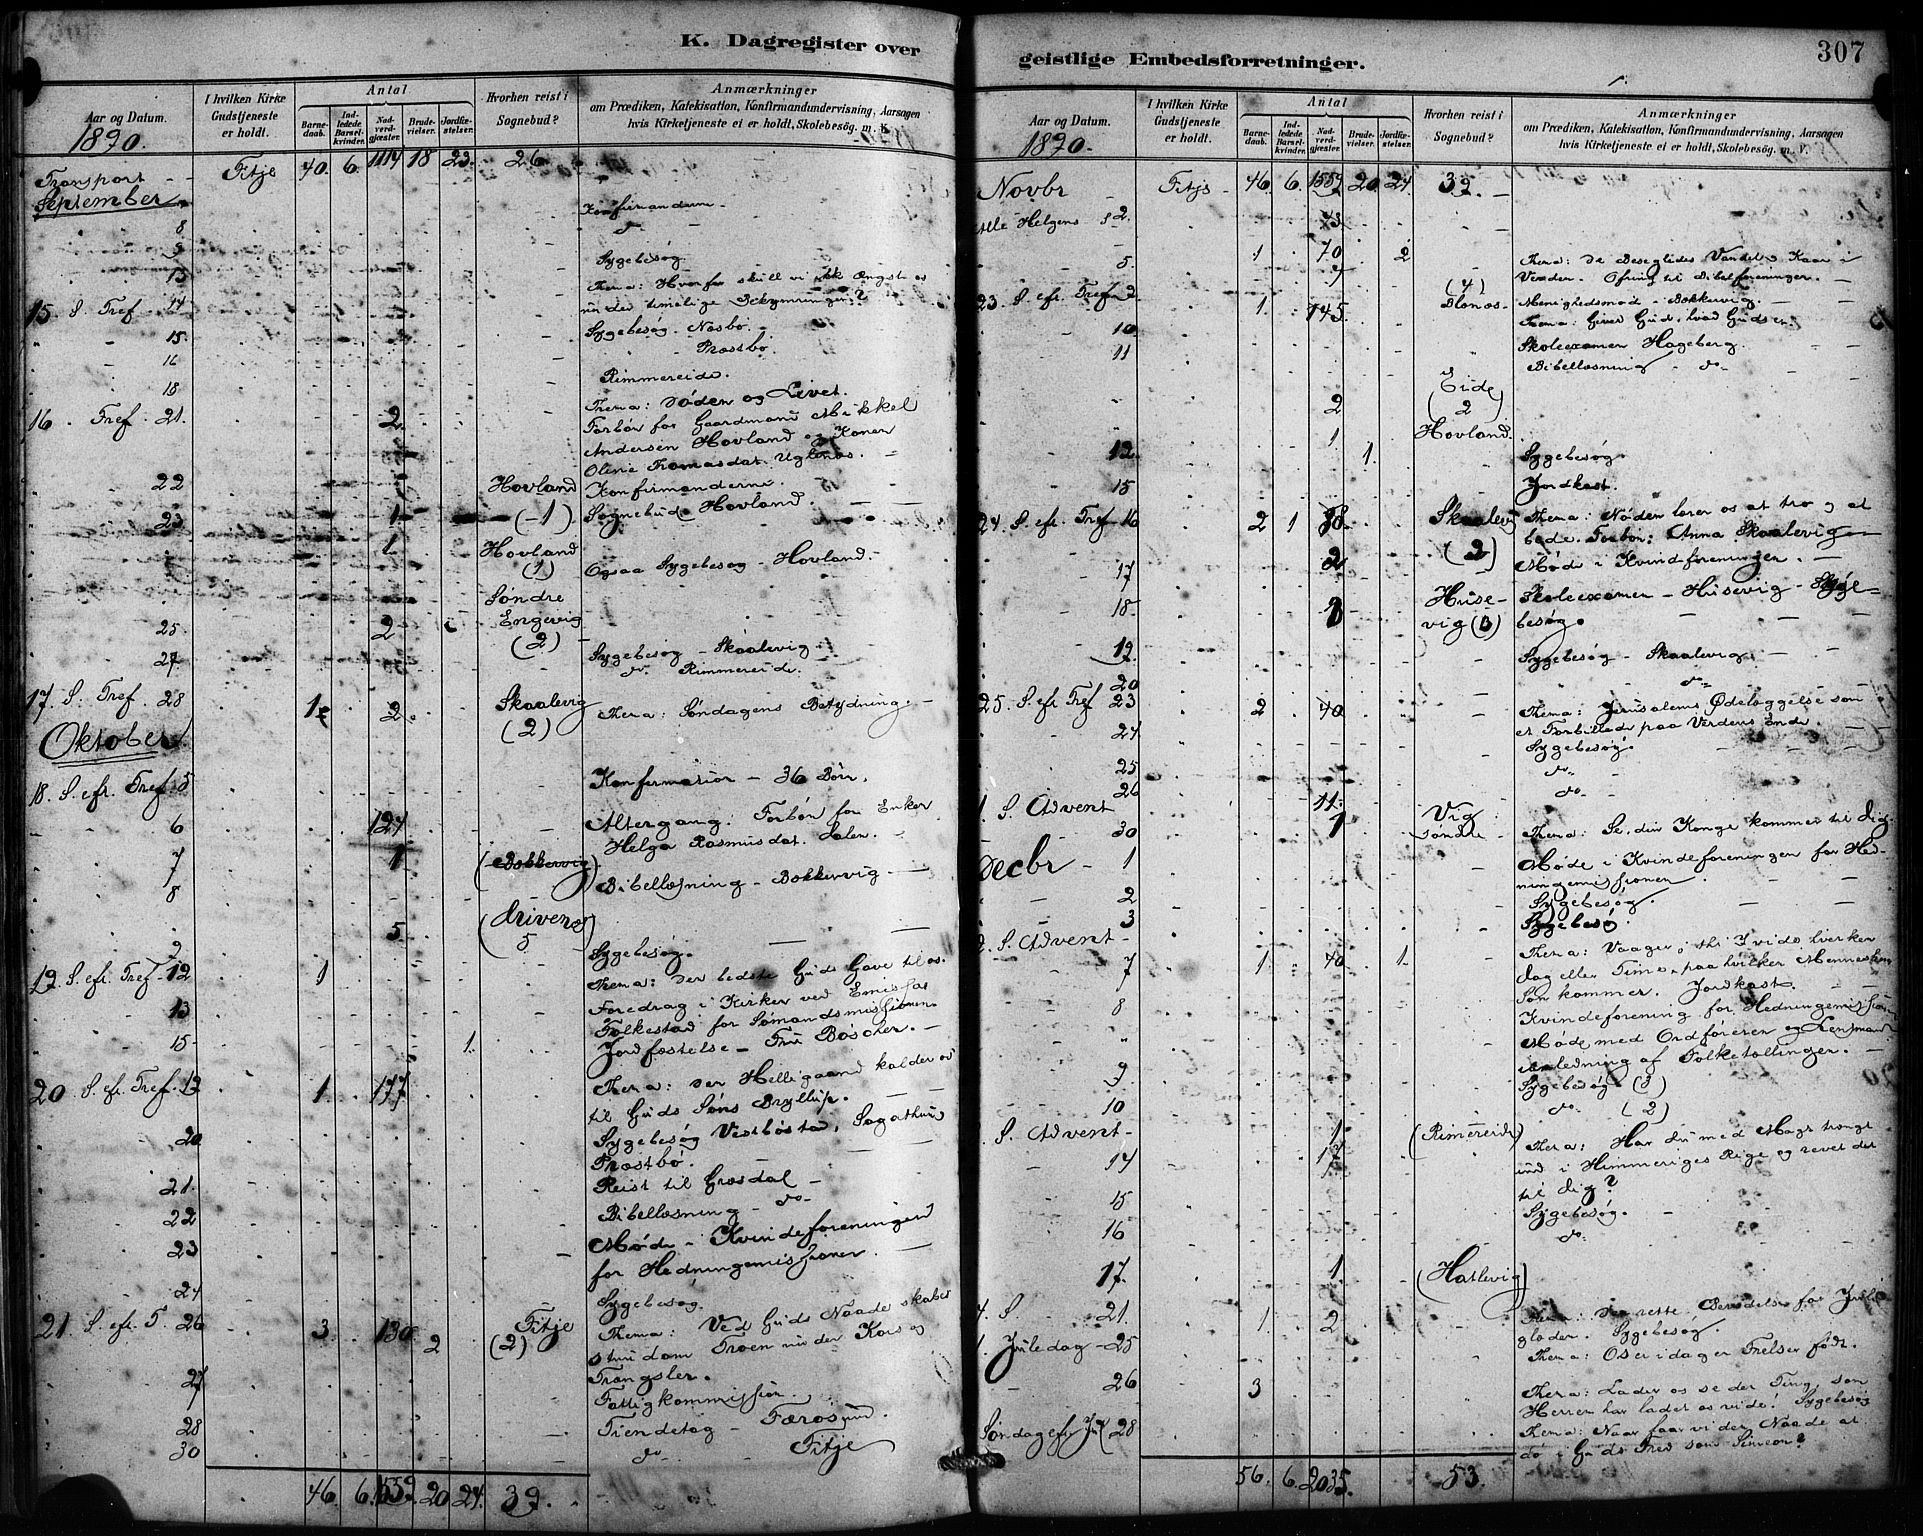 K. Dagregister over
Aar og Datum.
1890.
I hvilken Kirke Gudstjeneste er holdt.
Antal
Barnedaab.
Indledede Barselkvinder.
Nadverdgjæster.
Brudevielser.
Jordfæstelser.
Hvorhen reist i Sognebud?
Anmærkninger
om Prædiken, Katekisation, Konfirmandundervisning, Aarsagen
hvis Kirketjeneste ei er holdt, Skolebesøg. m. V.
Transport Fitje 40. 6. 1114 18 23. 26
September
8 Konfirmanderne
9 do
13 Sygebesøg.
15. S. Tref. 14 Thema: Hvorfor skull vi ikk ængst os
under timelige Bekymringer?
15. Sygebesøg. Nesbø.
16 Præstbø.
18 Rimmereide.
16. Tref. 21. 2. Thema: Døden og Livet.
Forbøn for Gaardmand Mikkel
Andersen Hovland og Konen
Oline Tomasdat. Uglenes.
22 1 Hovland Konfirmanderne.
23 1 (1) Sognebud Hovland.
1 Hovland
(1) Ogsaa Sygebesøg - Hovland
Søndre
25. 2 Engevig
(2) Sygebesøg - Skaalevig
27 do Rimmereide.
17. S. Tref. 28 1 2. Skaalevig
(2) Thema: Søndagens Betydning.
Oktober
18. S. efr. Tref. 5 Konfirmation - 36 Børn.
6 124 Altergang. Forbøn for Enken
Helga Rasmusdat. Dalen.
7 1 (Bekkervig)
8 Bibellæsning - Bekkervig
5. (Drivenes
5)
9 Sygebesøg.
19. S. efr. Tref. 12 1 Thema: Den bedste Guds Gave til os.
13 Foredrag i Kirken ved Emissær
Folkestad for Sømandsmissionen.
15 1. Jordfæstelse - Fru Böscher.
20 S. efr. Tref. 19 1. 177 Thema: Den Helligaand kalder os
til Guds Søns Bryllup.
20 Sygebesøg Vestbøstad, Sagathun
Præstbø.
21. Reist til Græsdal
22 Bibellæsning - do
23 Møde - Kvindeforeningen
for Hedningemissionen.
24 Sygebesøg.
21. S. efr. T. 26 3. 130 2 Fitje
(2) Thema: Ved Guds Naade skabes
Troen under Kors og
Trængsler.
27 Fattigkommission.
28 Tiendetag - Færøsund.
30 do Fitje
46. 6. 1559. 20 24. 39.
geistlige Embedsforretninger.
307
Aar og Datum.
1890.
I hvilken Kirke Gudstjeneste er holdt.
Antal
Barnedaab.
Indledede Barselkvinder.
Nadverdgjæster.
Brudevielser.
Jordfæstelser.
Hvorhen reist i Sognebud?
Anmærkninger
om Prædiken, Katekisation, Konfirmandundervisning, Aarsagen
hvis Kirketjeneste ei er holdt, Skolebesøg. m. V.
Novbr Fitje 46. 6. 1559 20. 24 39.
Alle Helgens S 2. 43
5. 1 70 2 Thema: De Besegledes Vandel og Kaar i
Verden. Ofring til Bibelforeningen.
23. S. efr. Tref. 9 1. 145. (4)
Blænes Menighedsmød - Bekkervig.
Thema: Giver Gud, hvad Guds er.
10. Skoleexamen Hageberg.
11 Bibellæsning do
Eide
2 (2)
1 Hovland.
12. 1. Sygebesøg
15 Jordkast.
24. S. efr. Tref. 16 2 1 38 Skaalevig Thema: Nøden lærer os at tro og at
2 (2) bede. Forbøn: Anna Skaalevig
17 Møde i Kvindforeningen.
18. Husevig Skoleexamen - Husevig - Sygebesøg.
19. Sygebesøg - Skaalevig
20 do
25. S. efr. Tref. 23 2 40 Thema: Jerusalems Ødelæggelse som
et Forbillede paa Verdens Ende.
24 Sygebesøg.
25 do
26 11. do
1. S. Advent 30 1 Vig
søndre Thema: Se, din Konge kommer til dig.
Decbr 1 Møde i Kvindeforeningen for Hedningemissionen.
2 Sygebesøg.
3 Sygebesøg
2. S. Advent
7 1 40 1. Thema: Vaager, thi I vide hverken
Dag eller Time, paa hvilken Menneskens
Søn kommer. Jordkast.
8 Kvindeforening for Hedningemissionen
Møde med Ordføreren og Lensmand
Anledning af Folketællingen.
9 Sygebesøg (3)
10 do (2)
S. Advent 1. (Rimereide)
14 17 Thema: Har du med Magt trængt
ind i Himmeriges Rige og revet det
til dig?
15 Sygebesøg.
16 do
17. 1. (Hatlevig)
4. S. 21. 1 2 Thema: Den rette Beredelse for Juleglæden. Sygebesøg.
1. Juledag 25 Thema: Os er idag en Frelser født.
26 3 Thema: Lader os se den Ting, som
Herren har ladet os vide! Sygebesøg
Søndag efr. Jul 28 Thema: Naar faar vi den Naade at
dø i Guds Fred som Simeon?
56. 6. 2035. 53.